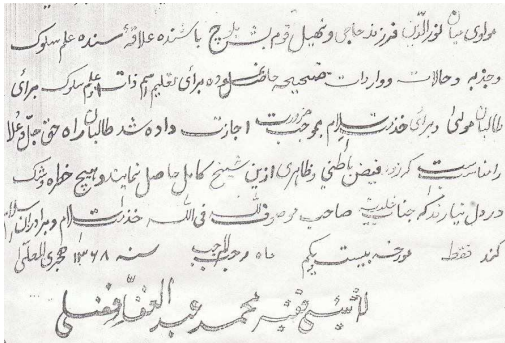 مولوی میاں نور الدین فرزند حاجی ونھیل قوم بلوچ باشنده علاقۂ سنده علم سلوک
وجذبہ وحالات وواردات صحیحہ حاصل نموده برائ تعلیم اسم ذات وعلم سلوک برائ
طالبان مولی وبرائ خدمت اسلام بموجب ضرورت اجازت داده شد طالبان راه حق جل وعلا
را مناسب کہ فیض باطنی وظاہری ازین شیخ کامل حاصل نمایند وہیچ خطره وشک
در دل نیارند کہ جناب صاحب موصوف فنا فی اللہ خدمت اسلام وبرادران اسلام
کند فقط مورخہ بیست یکم ماه رجب المرجب سنہ ۱۳۶۸ ہجری المعلی
لاشیئ فقیر محمد عبد الغفار فضلی